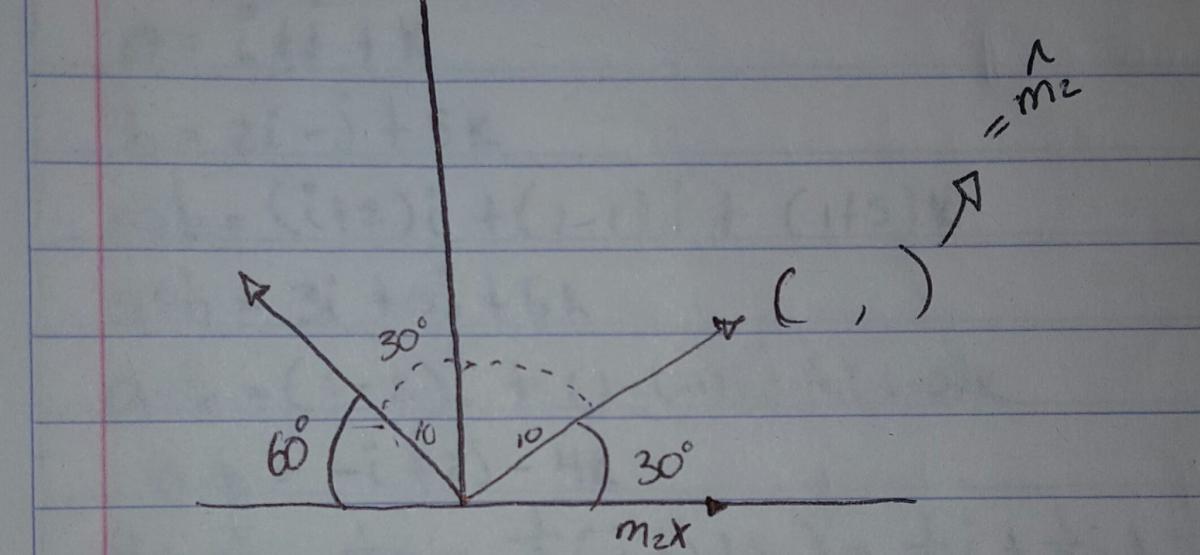 ^
= m2
( , )
30°
60°
10
10
30°
m2x